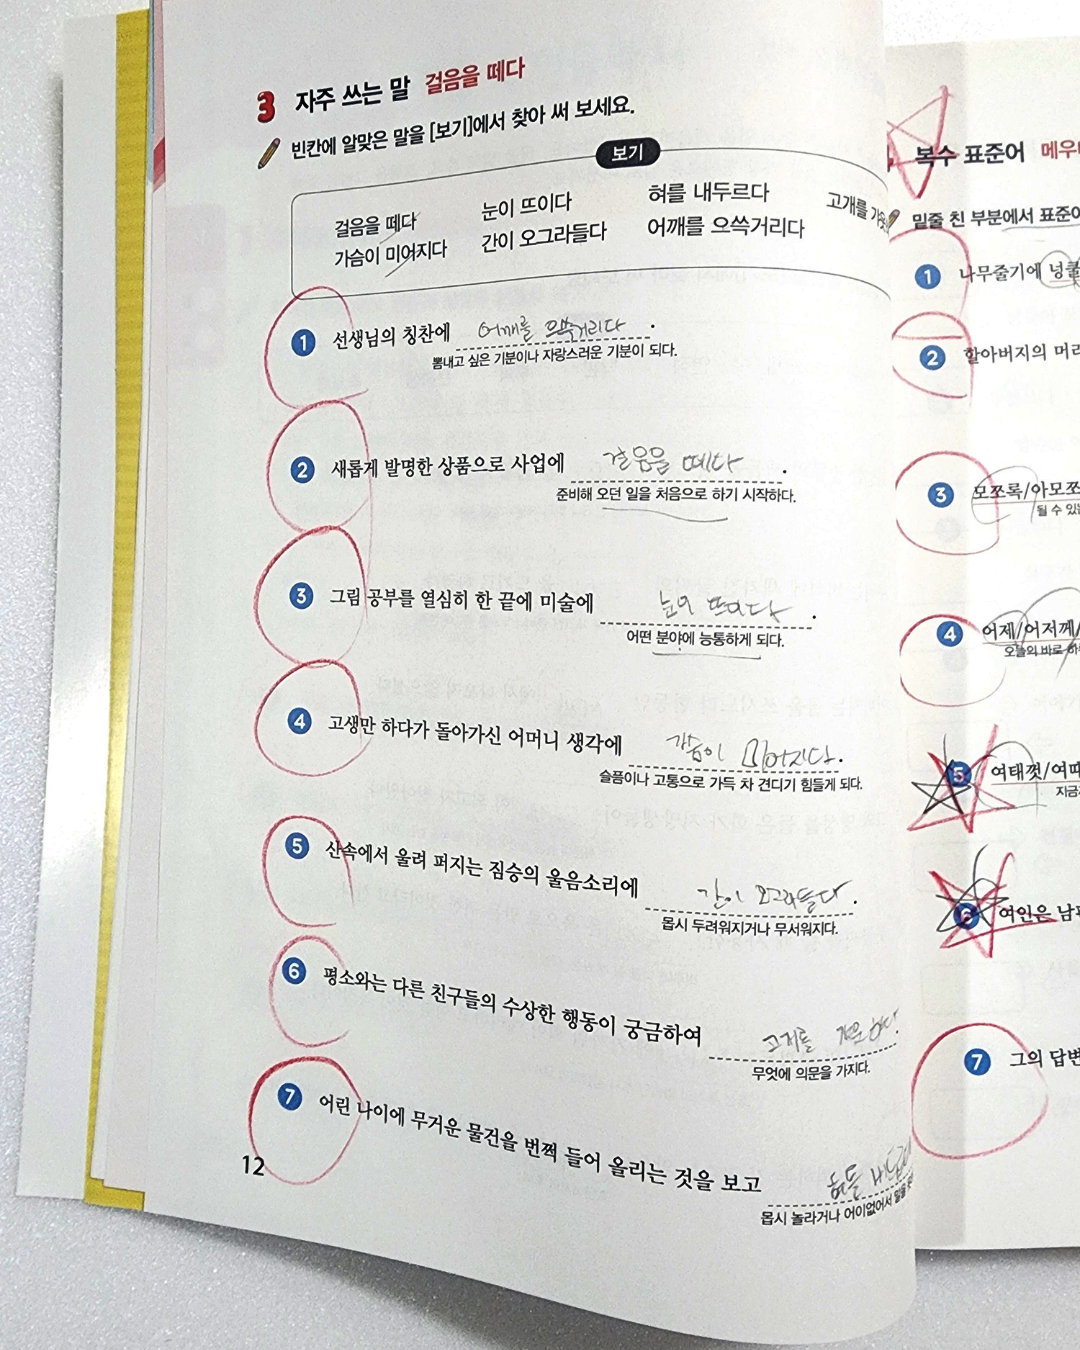 3 자주 쓰는 말 걸음을 떼다
빈칸에 알맞은 말을 [보기]에서 찾아 써 보세요.
보기
걸음을 떼다 눈이 뜨이다 혀를 내두르다 고개를
가슴이 미어지다 간이 오그라들다 어깨를 으쓱거리다
1 선생님의 칭찬에 어깨를 으쓱거리다.
뽐내고 싶은 기분이나 자랑스러운 기분이 되다.
2 새롭게 발명한 상품으로 사업에 걸음을 떼다.
준비해 오던 일을 처음으로 하기 시작하다.
3 그림 공부를 열심히 한 끝에 미술에 눈이 뜨이다.
어떤 분야에 능통하게 되다.
4 고생만 하다가 돌아가신 어머니 생각에 가슴이 미어지다.
슬픔이나 고통으로 가득 차 견디기 힘들게 되다.
5 산속에서 울려 퍼지는 짐승의 울음소리에 간이 오그라들다.
몹시 두려워지거나 무서워지다.
6 평소와는 다른 친구들의 수상한 행동이 궁금하여 고개를
무엇에 의문을 가지다.
7 어린 나이에 무거운 물건을 번쩍 들어 올리는 것을 보고
몹시 놀라거나 어이없어서 말을
12
복수 표준어
밑줄 친 부분에서
1 나무줄기에 넝쿨
2 할아버지의 머리
3 모쪼록/아모쪼
될 수 있는
4 어제/어저께/
오늘의 바로 하루
5 여태껏/여태
지금
6 여인은 남편
7 그의 답변